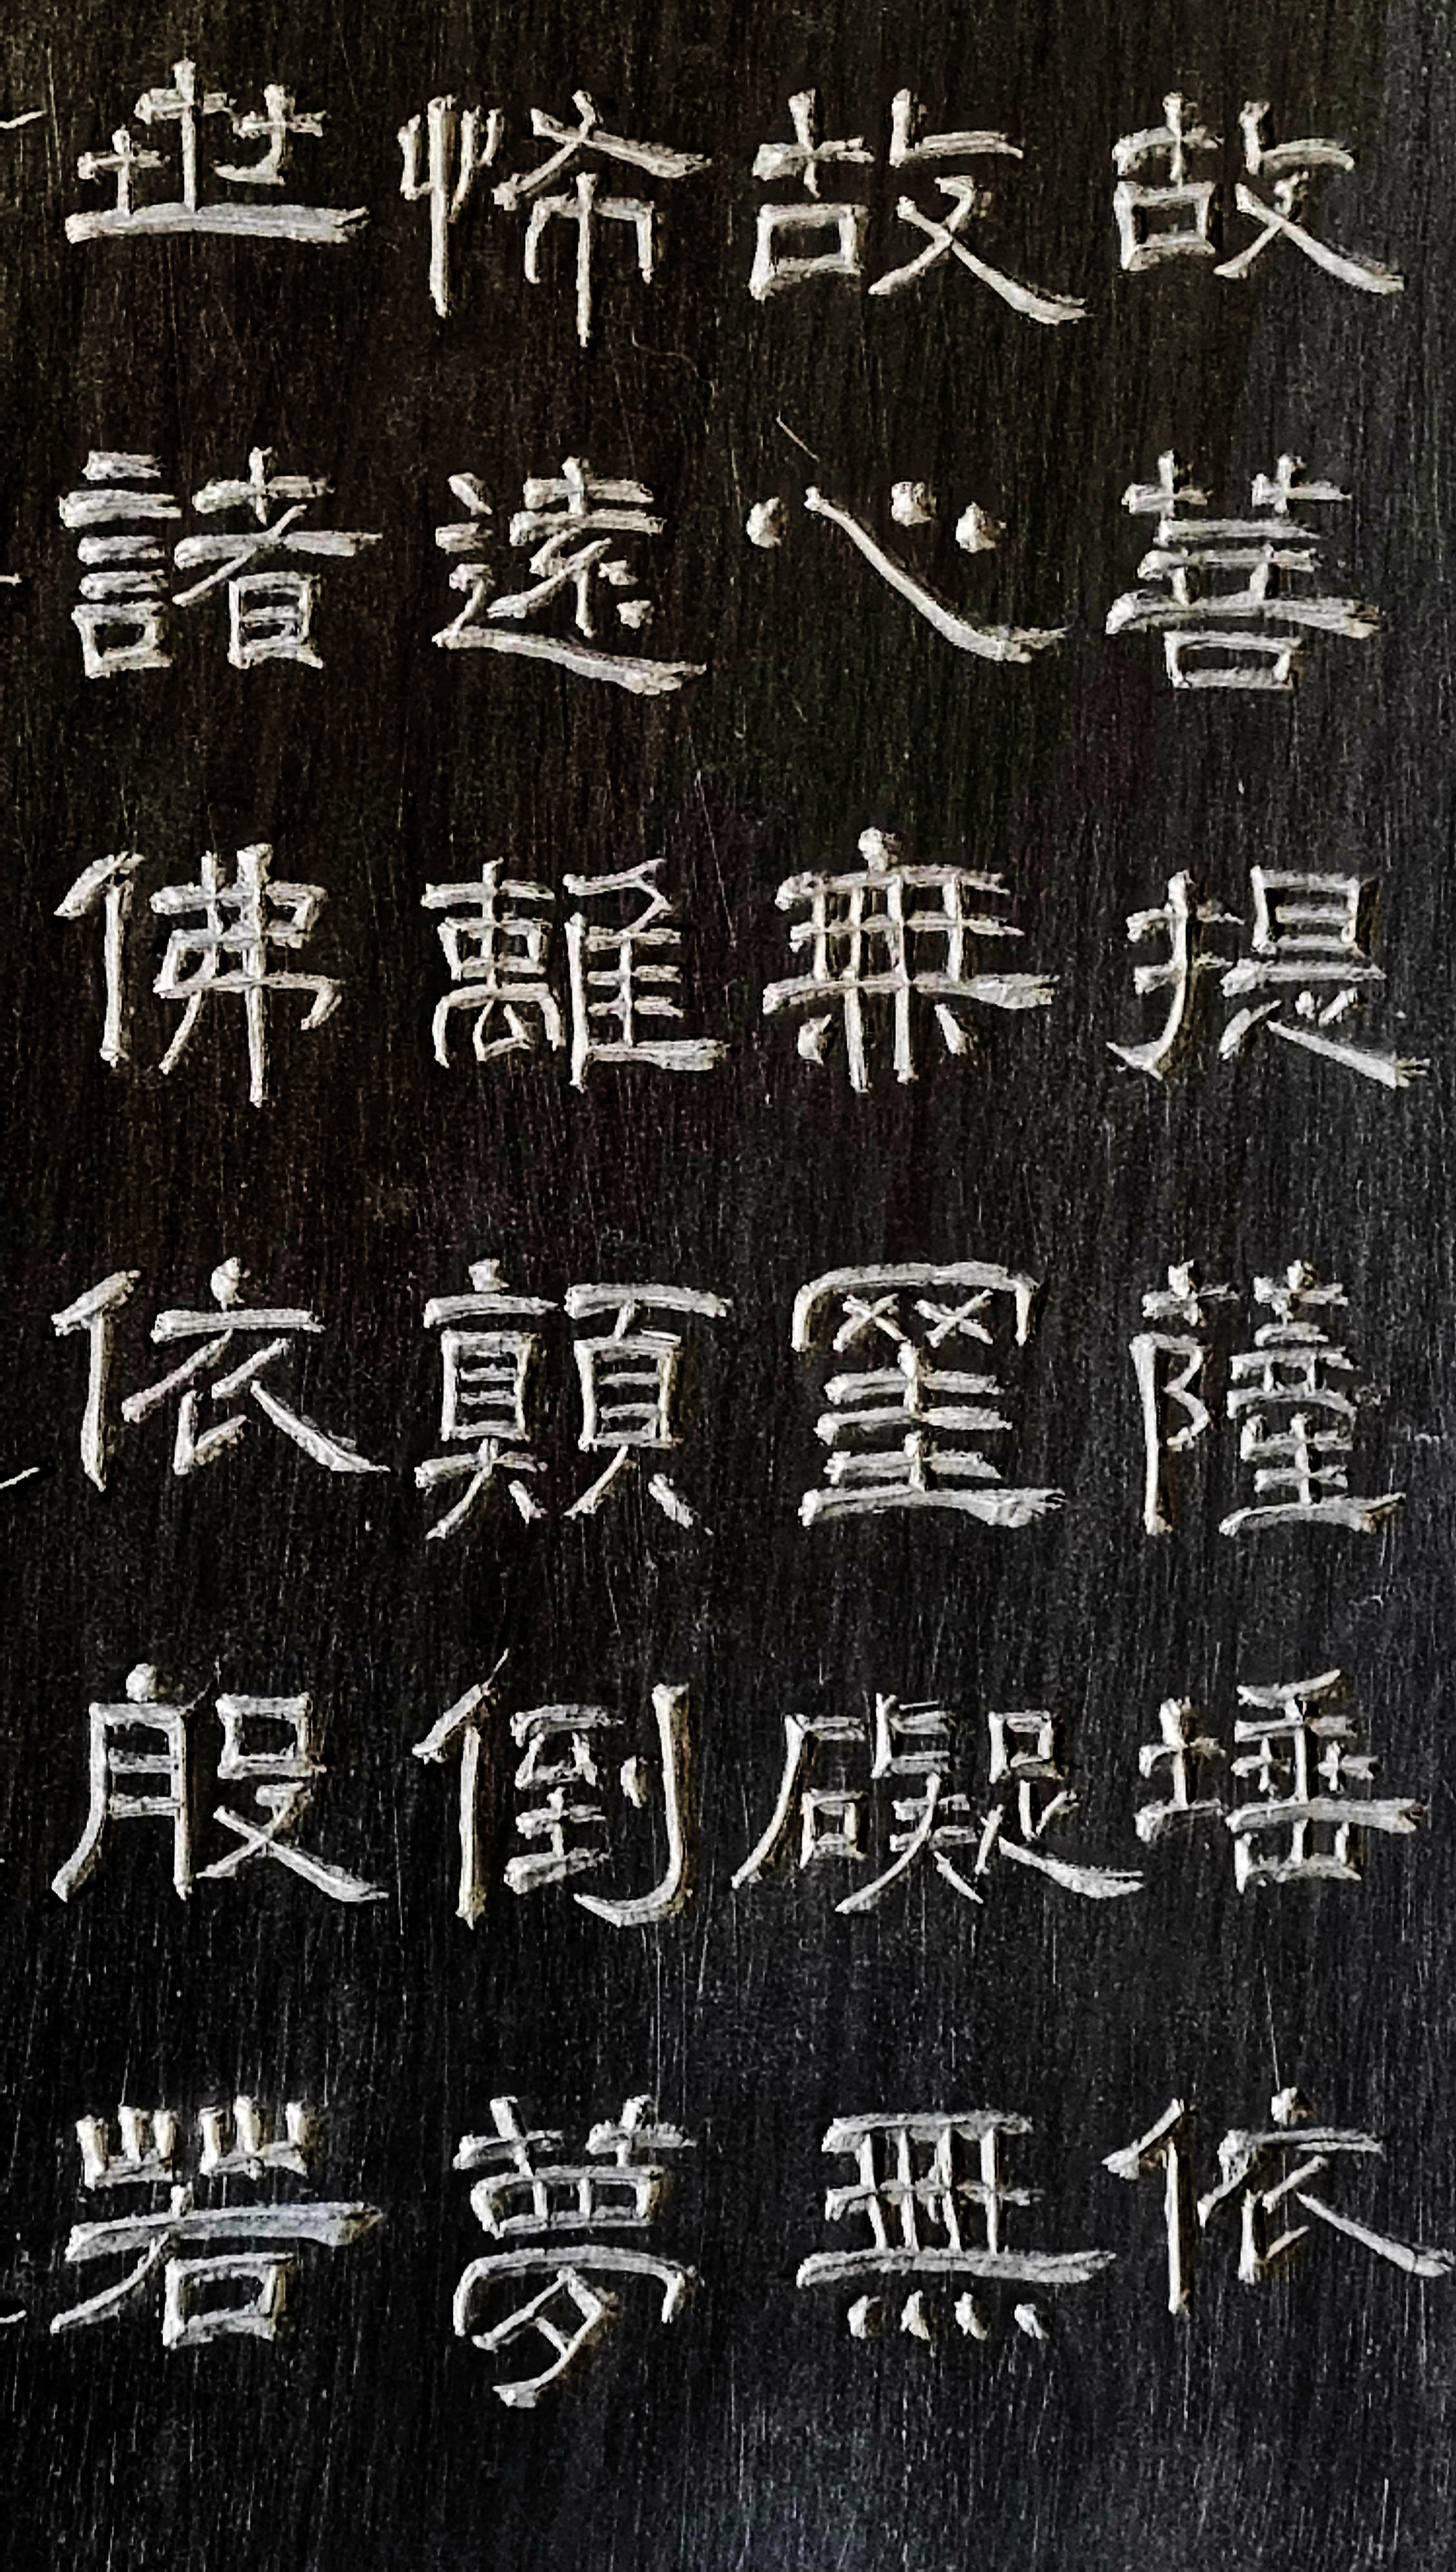 故菩提薩埵依
故心無罣礙無
怖遠離顛倒夢
世諸佛依般若